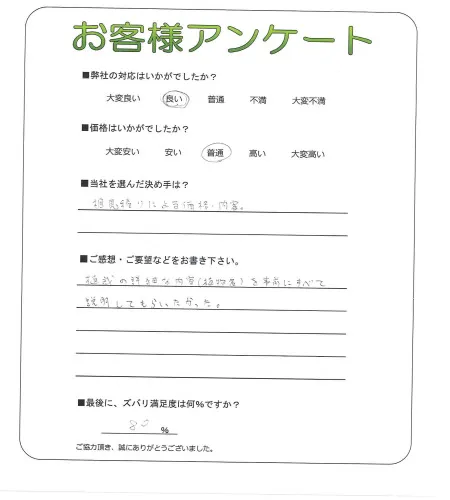 お客様アンケート
■弊社の対応はいかがでしたか？
大変良い 良い 普通 不満 大変不満
■価格はいかがでしたか？
大変安い 安い 普通 高い 大変高い
■当社を選んだ決め手は？
相見積りによる価格・内容。
■ご感想・ご要望などをお書き下さい。
植栽の詳細な内容(植物名)を事前にすべて
説明してもらいたかった。
■最後に、ズバリ満足度は何%ですか？
80 %
ご協力頂き、誠にありがとうございました。